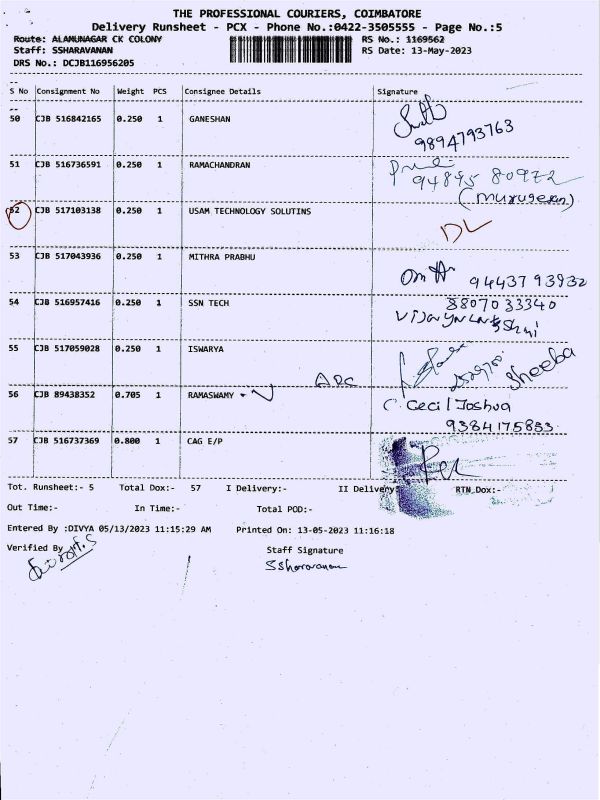 THE PROFESSIONAL COURIERS, COIMBATORE
Delivery Runsheet - PCX - Phone No.:0422-3505555 - Page No.:5
Route: ALAMUNAGAR CK COLONY RS No.: 1169562
Staff: SSHARAVANAN RS Date: 13-May-2023
DRS No.: DCJB116956205
S No Consignment No Weight PCS Consignee Details Signature
50 CJB 516842165 0.250 1 GANESHAN
9894793763
51 CJB 516736591 0.250 1 RAMACHANDRAN
94895 80972
(Murugesan)
52 CJB 517103138 0.250 1 USAM TECHNOLOGY SOLUTINS DL
53 CJB 517043936 0.250 1 MITHRA PRABHU
9443793932
54 CJB 516957416 0.250 1 SSN TECH 8807033340
55 CJB 517059028 0.250 1 ISWARYA Sheeba
56 CJB 89438352 0.705 1 RAMASWAMY - C. Cecil Joshua
9384175853
57 CJB 516737369 0.800 1 CAG E/P
Tot. Runsheet:- 5 Total Dox:- 57 I Delivery:- II Delivery RTN Dox:-
Out Time:- In Time:- Total POD:-
Entered By :DIVYA 05/13/2023 11:15:29 AM Printed On: 13-05-2023 11:16:18
Verified By Staff Signature
SSharavanan